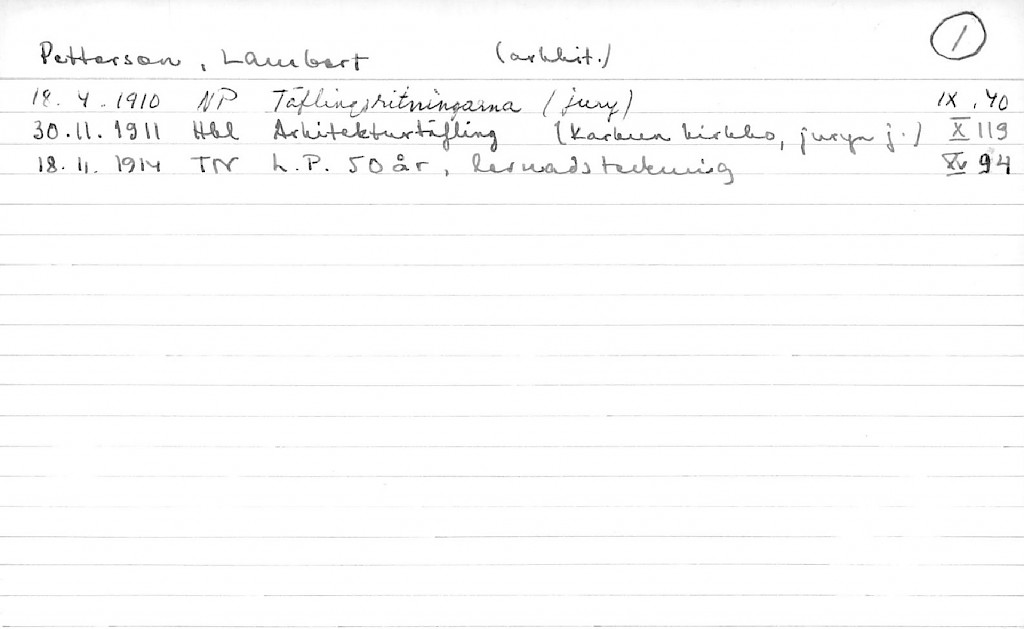 Petterson, Lambert (arkkit.) 1
18. 4. 1910 NP Täflingsritningarna (jury) IX, 40
30.11.1911 Hbl Arkitekturtäfling (Karkun kirkko, juryn j.) X 119
18.11.1914 TN L.P. 50 år, levnadsteckning XV 94